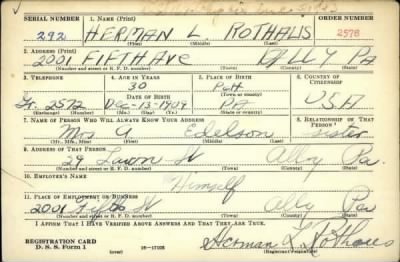 SERIAL NUMBER 1. NAME (Print) ORDER NUMBER
292 HERMAN L. ROTHAUS 2578
(First) (Middle) (Last)
2. ADDRESS (Print)
2001 FIFTH AVE PA
(Number and street or R. F. D. number) (Town) (County) (State)
3. TELEPHONE 4. AGE IN YEARS 5. PLACE OF BIRTH 6. COUNTRY OF CITIZENSHIP
30 PGH
DATE OF BIRTH (Town or county)
Gr. 2572 DEC-13-1909 PA USA
(Exchange) (Number) (Mo.) (Day) (Yr.) (State or country)
7. NAME OF PERSON WHO WILL ALWAYS KNOW YOUR ADDRESS 8. RELATIONSHIP OF THAT PERSON
Mrs A Edelson sister
(Mr., Mrs., Miss) (First) (Middle) (Last)
9. ADDRESS OF THAT PERSON
29 Lawn St Alby Pa.
(Number and street or R. F. D. number) (Town) (County) (State)
10. EMPLOYER'S NAME
Himself
11. PLACE OF EMPLOYMENT OR BUSINESS
2001 Fifth St Alby Pa
(Number and street or R. F. D. number) (Town) (County) (State)
I AFFIRM THAT I HAVE VERIFIED ABOVE ANSWERS AND THAT THEY ARE TRUE.
REGISTRATION CARD
D. S. S. Form 1 16—17105 Herman L Rothaus
(Registrant's signature)